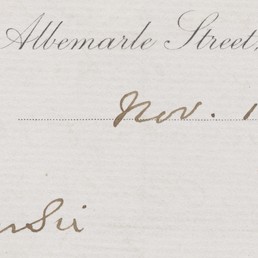 Albemarle Street,
Nov. 1
Sir